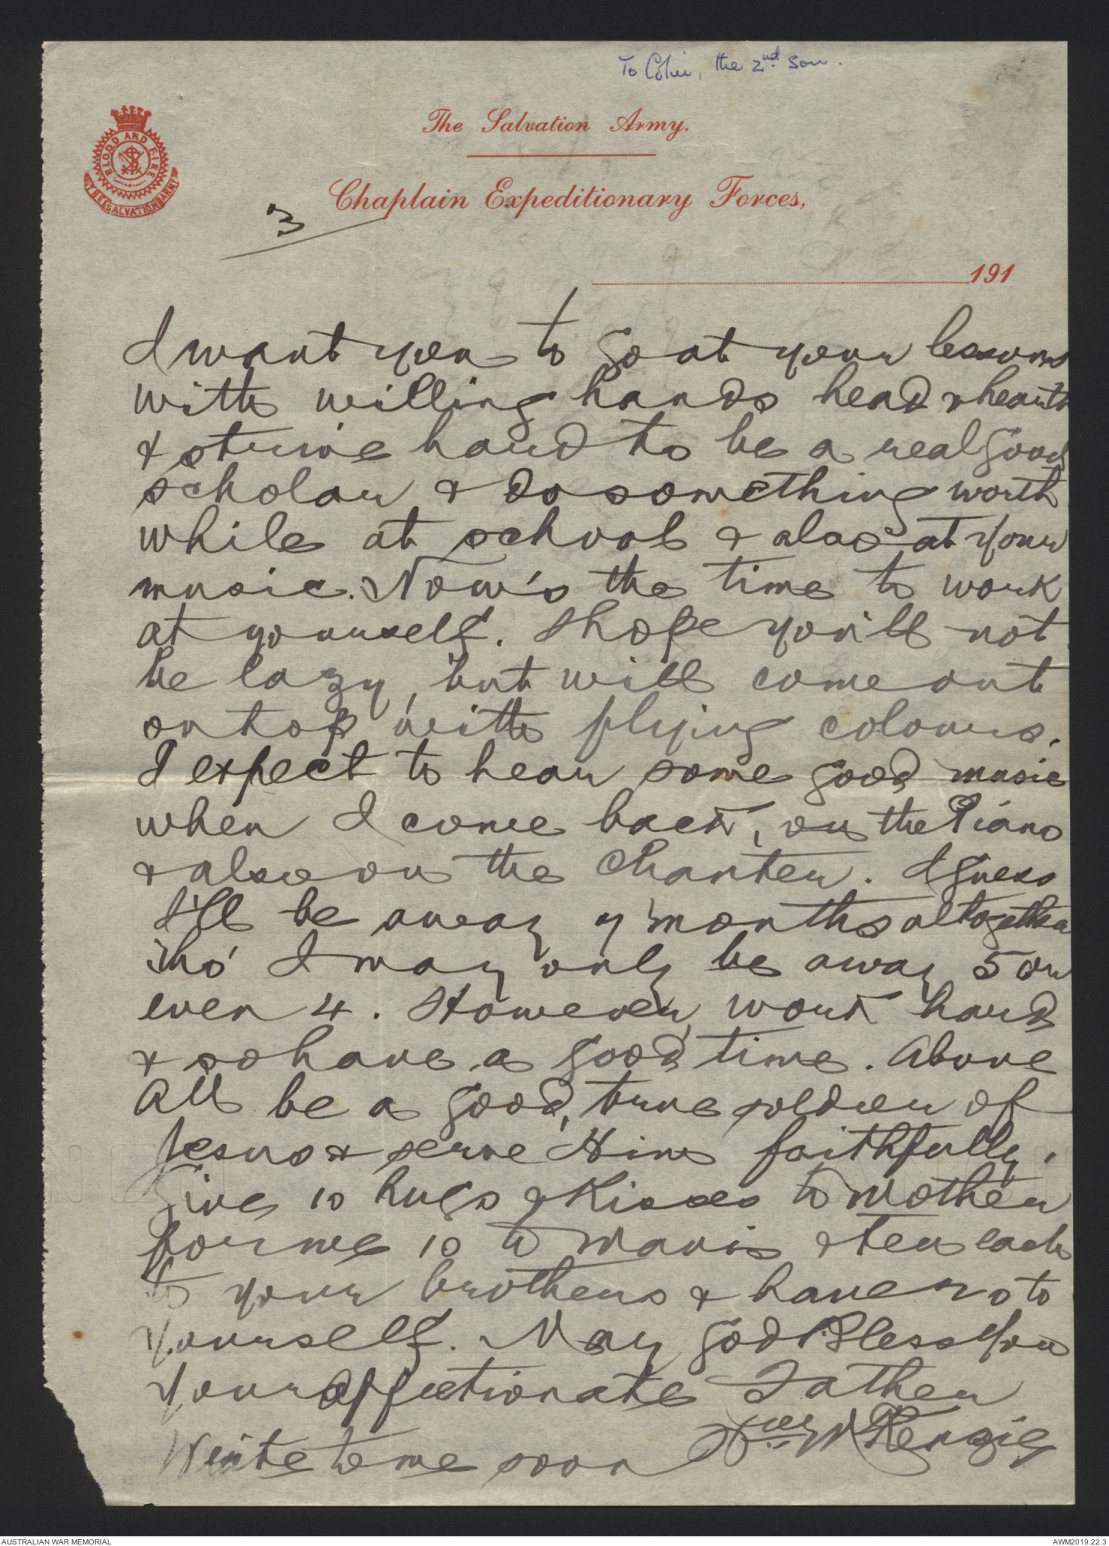 To Colin, the 2nd Son.
The Salvation Army.
BLOOD AND FIRE
THE SALVATION ARMY
Chaplain Expeditionary Forces,
3
191
I want you to go at your lessons
with willing hands head & heart
& strive hard to be a real good
scholar & do something worth
while at school & also at your
music. Now's the time to work
at yourself. I hope you'll not
be lazy, but will come out
on top with flying colours.
I expect to hear some good music
when I come back, on the Piano
& also on the Chanter. I guess
I'll be away 7 months altogether
tho' I may only be away 5 or
even 4. However, work hard
& so have a good time. Above
all be a good, true soldier of
Jesus & serve Him faithfully.
Give 10 hugs & Kisses to Mother
for me 10 to Mavis & ten each
to your brothers & have 20 to
yourself. May God Bless you
Your affectionate Father
Write to me soon Wm McKenzie
AUSTRALIAN WAR MEMORIAL
AWM2019.22.3